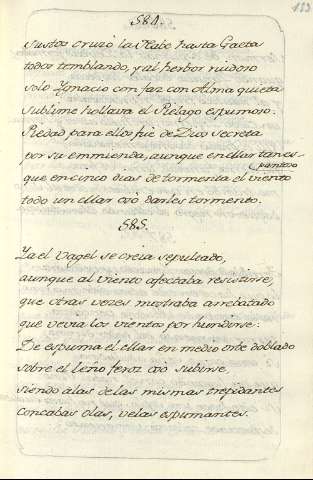 584.
133
Sustos cruzó la Nabe hasta Gaeta
todos temblando, y al herbor ruidoso
solo Ygnacio con faz con Alma quieta
sublime hollava el Pielago espumoso.
Piedad para ellos fué de Dios secreta
por su emmienda, aunque en Mar tan es-
pantoso
que en cinco dias de tormenta el viento
todo un Mar osó darles tormento.
585.
Ya el Vagel se creia sepultado,
aunque al viento afectaba resistirse,
que otras veces mostraba arrebatado
que vevia los vientos por hundirse:
De espuma el Mar en medio orbe doblado
sobre el leño feroz osó subirse,
siendo alas de las mismas trepidantes
concabas olas, velas espumantes.